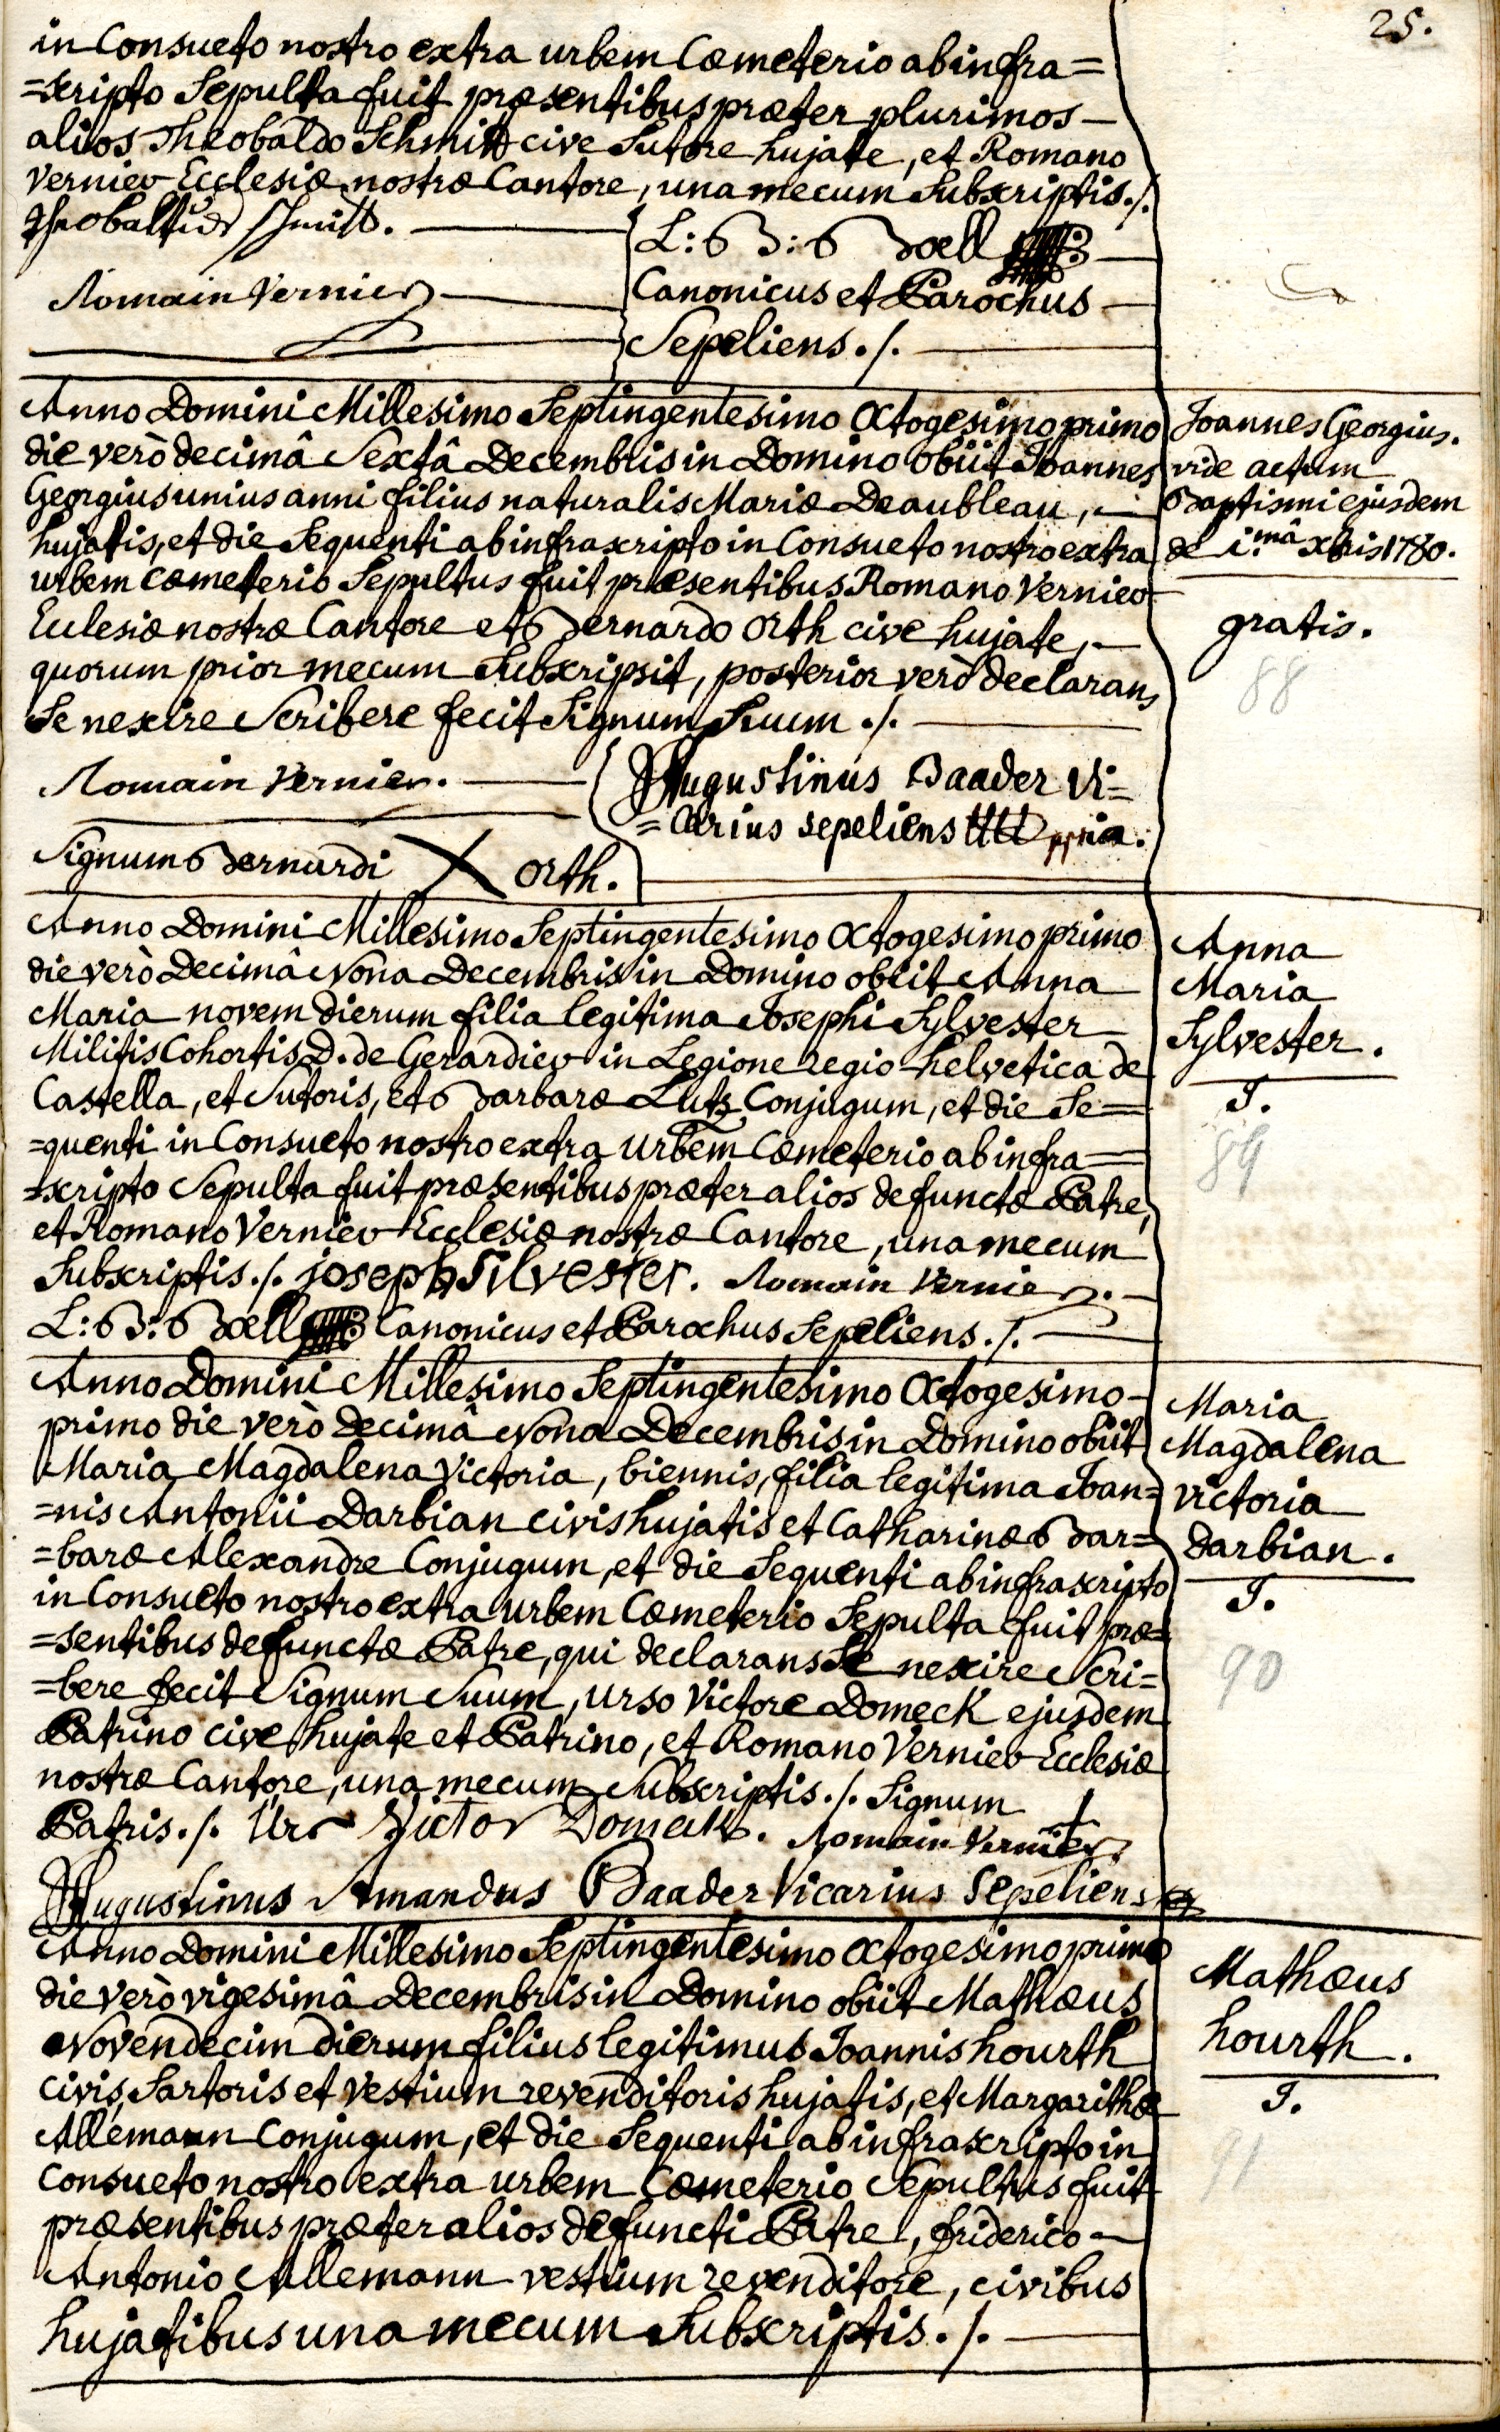 25.
in Consueto nostro extra urbem Cœmeterio ab infra=
=scripto Sepulta fuit præsentibus præter plurimos
alios Theobaldo Schmitt cive Sutore hujate, et Romano
Vernier Ecclesiæ nostræ Cantore, una mecum Subscriptis ./.
Romain Vernier
L: B: Boell
Canonicus et Parochus
Sepeliens ./.
Anno Domini Millesimo Septingentesimo Octogesimo primo
die verò decimâ Sextâ Decembris in Domino obiit Joannes
Georgius unius anni filius naturalis Mariæ Deaubleau,
hujatis, et die Sequenti ab infrascripto in Consueto nostro extra
urbem Cœmeterio Sepultus fuit præsentibus Romano Vernier
Ecclesiæ nostræ Cantore et Bernardo Orth cive hujate,
quorum prior mecum Subscripsit, posterior verò declarans
Se nescire Scribere fecit Signum Suum ./.
Romain Vernier.
Augustinus Baader Vi=
=carius sepeliens
Signum Bernardi X Orth.
Joannes Georgius.
vide actum
Baptismi ejusdem
de 1.mâ xbris 1780.
gratis.
88
Anno Domini Millesimo Septingentesimo Octogesimo primo
die verò Decimâ Nona Decembris in Domino obiit Anna
Maria novem dierum filia legitima Josephi Sylvester
Militis Cohortis D. de Gerardier in Legione regio helvetica de
Castella, et Sutoris, et Barbaræ Lutz Conjugum, et die Se=
=quenti in Consueto nostro extra Urbem Cœmeterio ab infra=
=scripto Sepulta fuit præsentibus præter alios defunctæ Patre,
et Romano Vernier Ecclesiæ nostræ Cantore, una mecum
Subscriptis ./. joseph Silvester. Romain Vernier.
L: B: Boell Canonicus et Parochus Sepeliens ./.
Anna
Maria
Sylvester.
J.
89
Anno Domini Millesimo Septingentesimo Octogesimo
primo die verò decimâ Nona Decembris in Domino obiit
Maria Magdalena Victoria, biennis, filia legitima Joan=
=nis Antonii Darbian civis hujatis et Catharinæ Bar=
=baræ Alexandre Conjugum, et die Sequenti ab infrascripto
in Consueto nostro extra urbem Cœmeterio Sepulta fuit præ=
=sentibus defunctæ Patre, qui declarans Se nescire Scri=
=bere fecit Signum Suum, Urso Victore Domeck ejusdem
Patrino cive hujate et Patrino, et Romano Vernier Ecclesiæ
nostræ Cantore, una mecum Subscriptis ./. Signum +
Patris ./. Urs Victor Domeck. Romain Vernier
Augustinus Amandus Baader Vicarius Sepeliens
Maria
Magdalena
Victoria
Darbian.
J.
90
Anno Domini Millesimo Septingentesimo Octogesimo primo
die verò vigesimâ Decembris in Domino obiit Mathæus
Novendecim dierum filius legitimus Joannis hourth
civis, Sartoris et vestium revenditoris hujatis, et Margarithæ
Allemann Conjugum, et die Sequenti ab infrascripto in
Consueto nostro extra urbem Cœmeterio Sepultus fuit
præsentibus præter alios defuncti Patre, friderico
Antonio Allemann vestium revenditore, civibus
hujatibus una mecum Subscriptis ./.
Mathæus
hourth.
J.
91